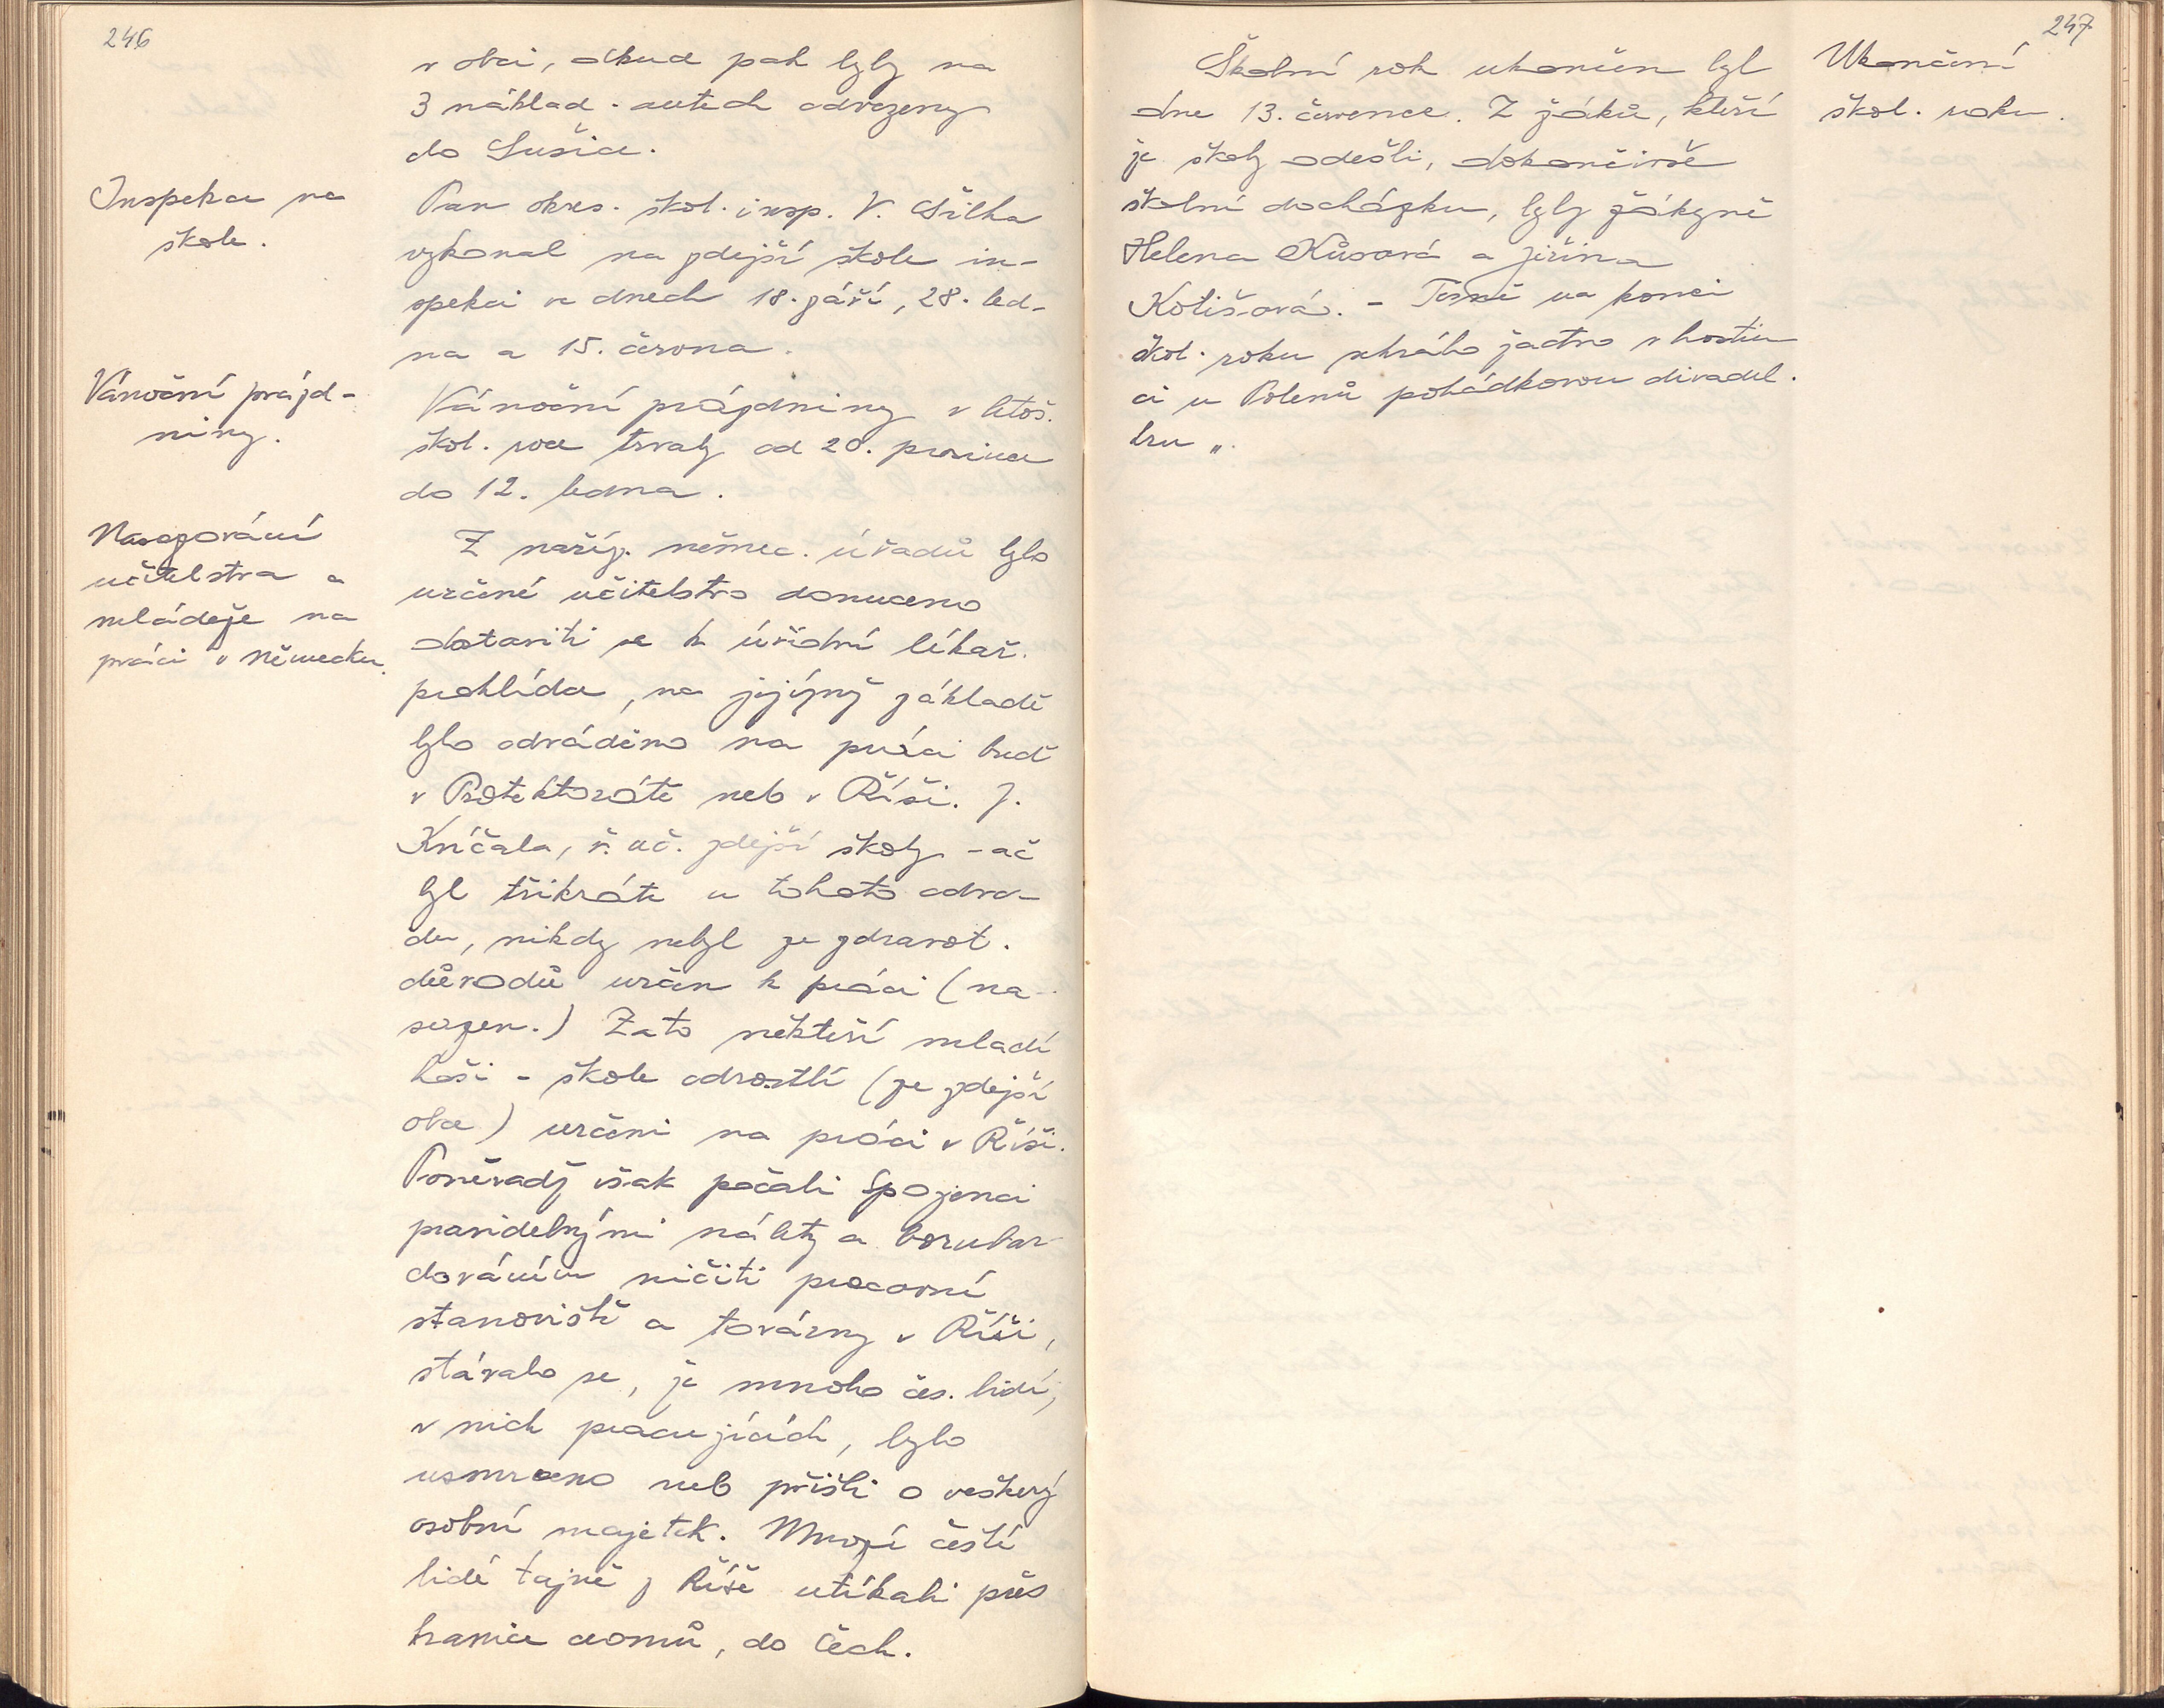 246
v obci, odkud pak byly na
3 náklad. autech odvezeny
do Sušice.
Inspekce na
škole.
Pan okres. škol. insp. V. Šilha
vykonal na zdejší škole in-
spekci ve dnech 18. září, 28. led-
na a 15. června.
Vánoční prázd-
niny.
Vánoční prázdniny v letoš.
škol. roce trvaly od 20. prosince
do 12. ledna.
Nasazování
učitelstva a
mládeže na
práci v Německu.
Z naříz. němec. úřadů bylo
určené učitelstvo donuceno
dostaviti se k úřední lékař.
prohlídce, na jejímž základě
bylo odváděno na práci buď
v Protektorátě neb v Říši. J.
Kníčala, ř. uč. zdejší školy - ač
byl třikráte u tohoto odvo-
du, nikdy nebyl ze zdravot.
důvodů určen k práci (na-
sazen.) Zato někteří mladí
hoši - škole odrostlí (ze zdejší
obce) určeni na práci v Říši.
Poněvadž však počali Spojenci
pravidelnými nálety a bombar-
dováním ničiti pracovní
stanoviště a továrny v Říši,
stávalo se, že mnoho čes. lidí,
v nich pracujících, bylo
usmrceno neb přišli o veškerý
osobní majetek. Mnozí čeští
lidé tajně z Říše utíkali přes
hranice domů, do Čech.
247
Ukončení
škol. roku.
Školní rok ukončen byl
dne 13. července. Z žáků, kteří
ze školy odešli, dokončivše
školní docházku, byly žákyně
Helena Kůsová a Jiřina
Kotišová. - Těsně na konci
škol. roku sehrálo žactvo v hostin
ci u Polenů pohádkovou divadel.
hru „